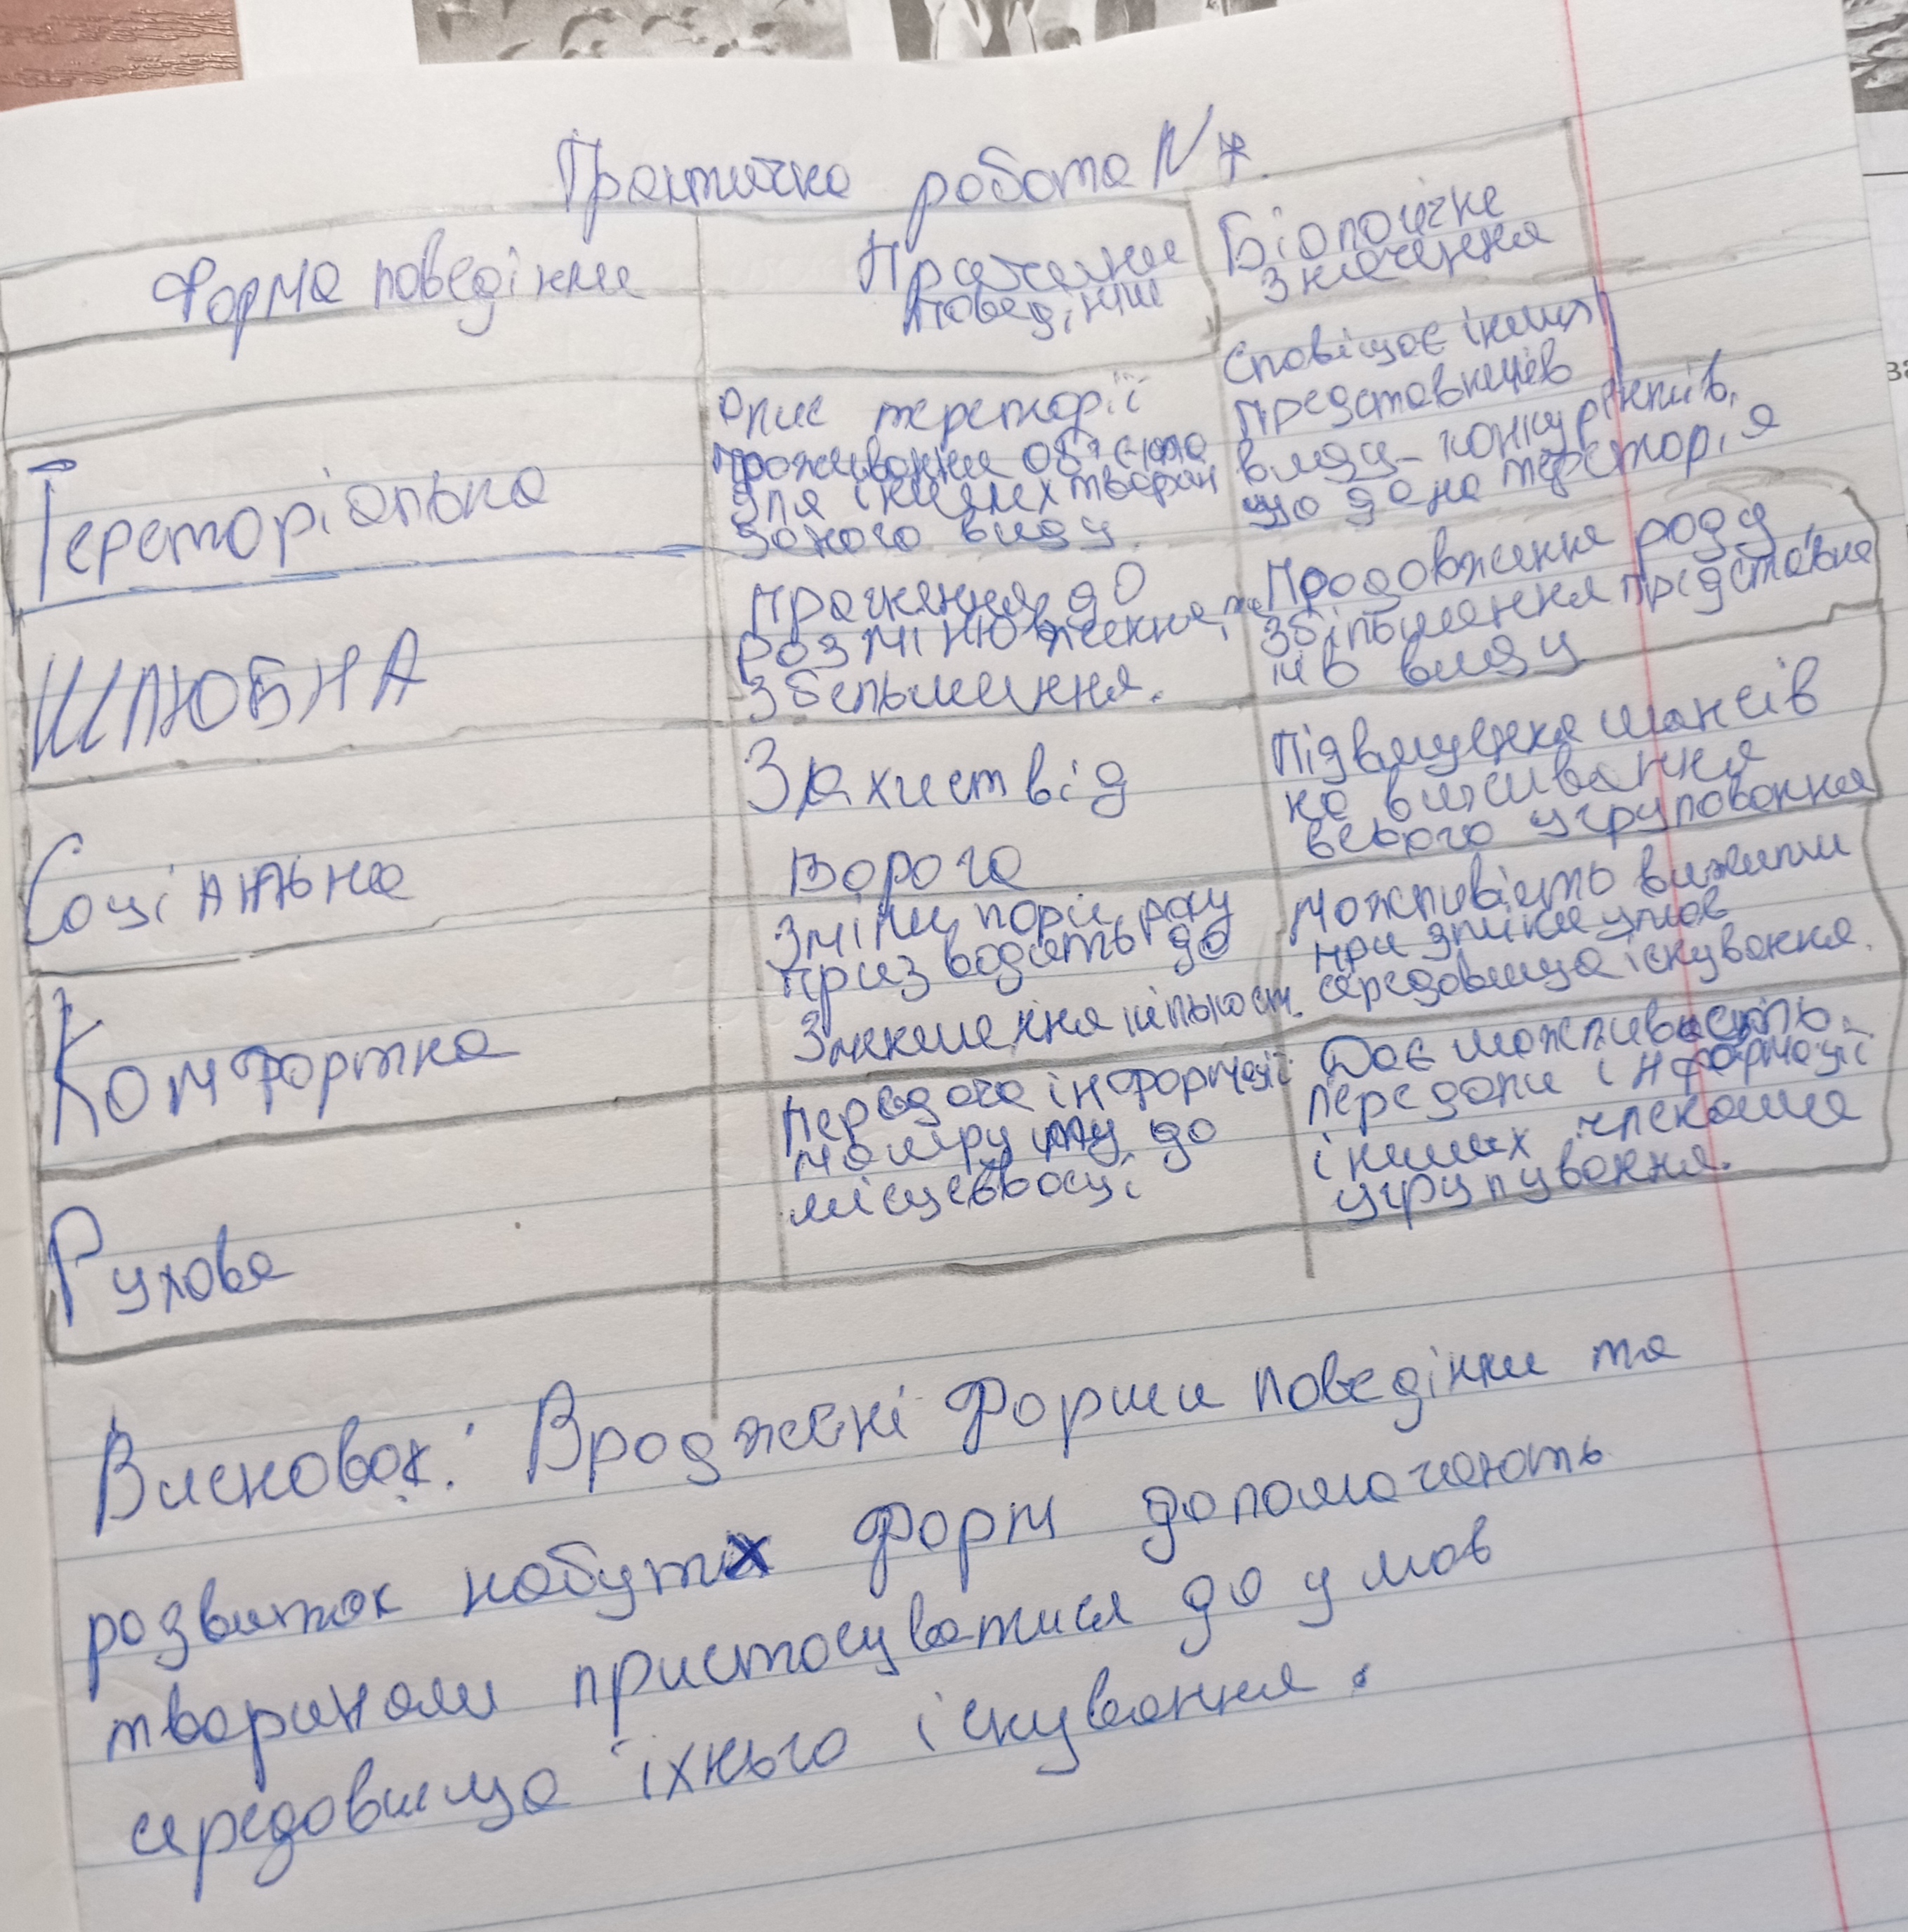 Практична робота N 7.
Форма поведінки
Причини
поведінки
Біологічне
значення
Тереторіальна
Опис тереторії
проживання
для інших тварин
виду
Сповіщає інших
представників
виду - конкурентів,
що дана тереторія
ШЛЮБНА
Прагнення до
розмноження, та
збільшення.
Продовження роду
збільшення представни
ків виду
Соціальна
Захист від
ворога
Підвищення шансів
на виживання
всього угруповання
Комфортна
Зміни пори року
призводять до
зменшення кількост.
Можливість вижити
при зміни умов
середовища існування.
Рухова
Передача інформації
маршруту до
місцевосці
Дає можливость
передати інформації
інших членами
угрупування.
Висновок: Вроджені форми поведінки та
розвиток набутих форм допомагають
тваринам пристосуватися до умов
середовища їхнього існування.